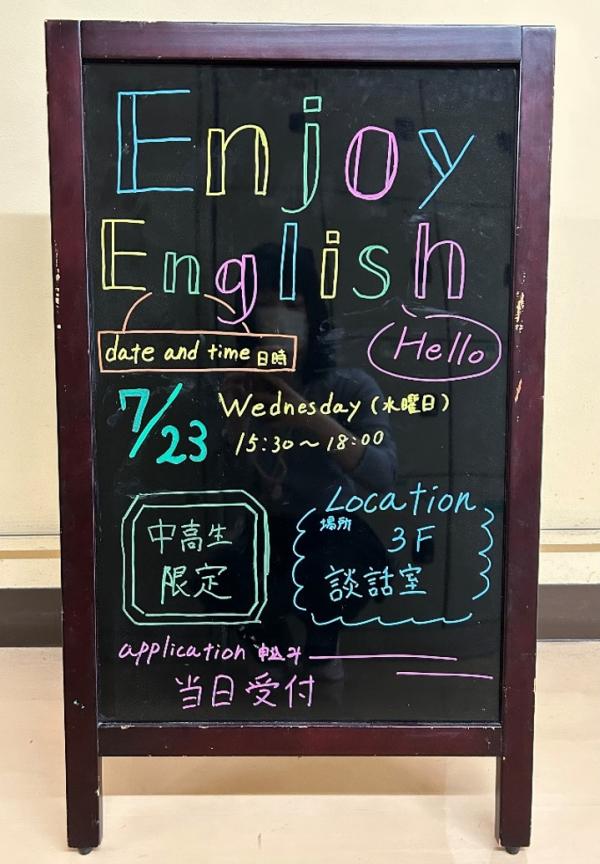 Enjoy
English
date and time 日時
Hello
7/23 Wednesday (水曜日)
15:30〜18:00
中高生
限定
Location
場所 3F
談話室
application 申込み
当日受付